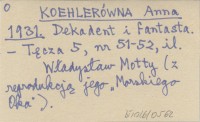 KOEHLERÓWNA Anna
1931. Dekadent i fantasta.
– Tęcza 5, nr 51-52, il.
Władysław Motty (z
reprodukcją jego „Morskiego
Oka").